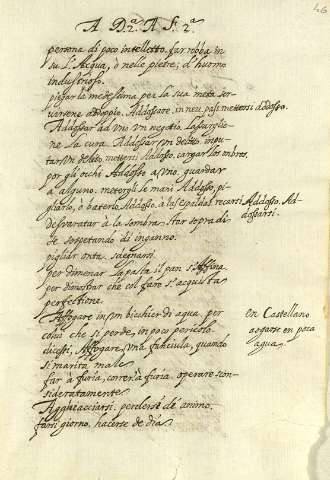 46
A D.2.ª A F. 2.ª
persona di poco intelletto. far robba in
su l'Acqua, ò nelle pietre; d'huomo
industrioso.
pigiar la medesima per la sua meta ser-
uirsene addoppio. Addossare, in neu. pass. mettersi addosso.
Addossar ad vno vn negotio. lasciargliene
la cura. Addossar vn delito, impu-
tar vn delito, mettersi Addosso, cargar los ombros.
por gli occhi Addosso a vno, guardar
a alguno. mettergli le mani Addosso, pi-
gliarlo, ò hauerlo Addosso, à las espaldas recarsi Addosso. Ad-
dossarsi.
desuaratar à la sombra. star sopra di
se sospetando di inganno.
pigliar onta. sdegnarsi.
per dimenar la pasta il pan s'Affina
per dimostrar che col fare s'acquista
perfectione.
Affogare in vn bicchier di aqua. per
colui che si perde, in poco pericolo
dicesi, Affogare vna fanciula, quando
si marita male
En Castellano
aogarse en poca
agua.
far à furia, correr à furia. operare scon-
sideratamente.
Agghiacciarsi. perdersi de animo.
farsi giorno, hacerse de dia.